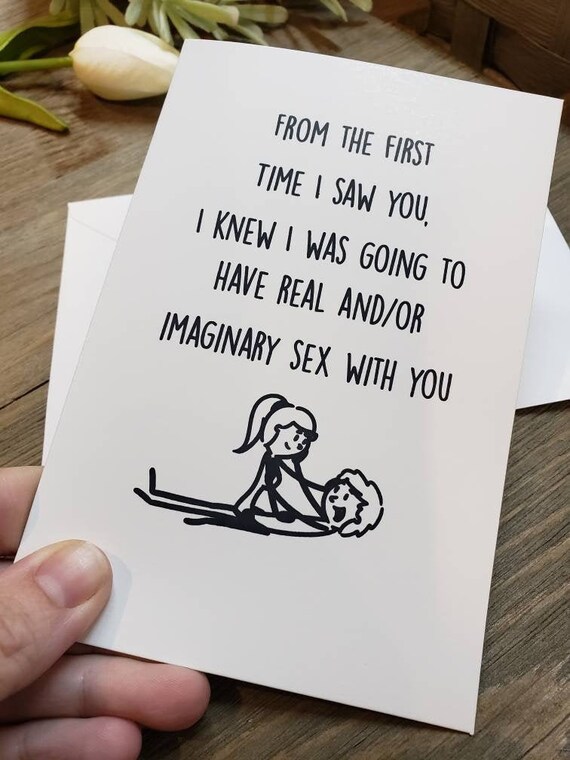 FROM THE FIRST
TIME I SAW YOU,
I KNEW I WAS GOING TO
HAVE REAL AND/OR
IMAGINARY SEX WITH YOU